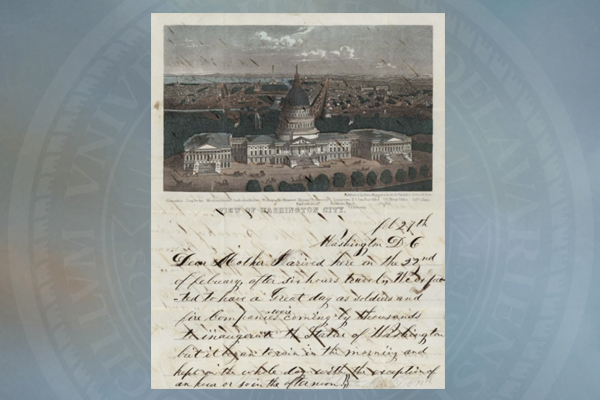 VIEW OF WASHINGTON CITY.
feb 29th
Washington D C
Dear Mother I arived here in the 22nd
of febuary after six hours travel, We expec
-ted to have a Great day as soldiers and
fire Companies were coming by thousands
to inaugurate the Statue of Washington
but it began to rain in the morning and
kept on the whole day with the exception of
an hour or so in the afternoon,